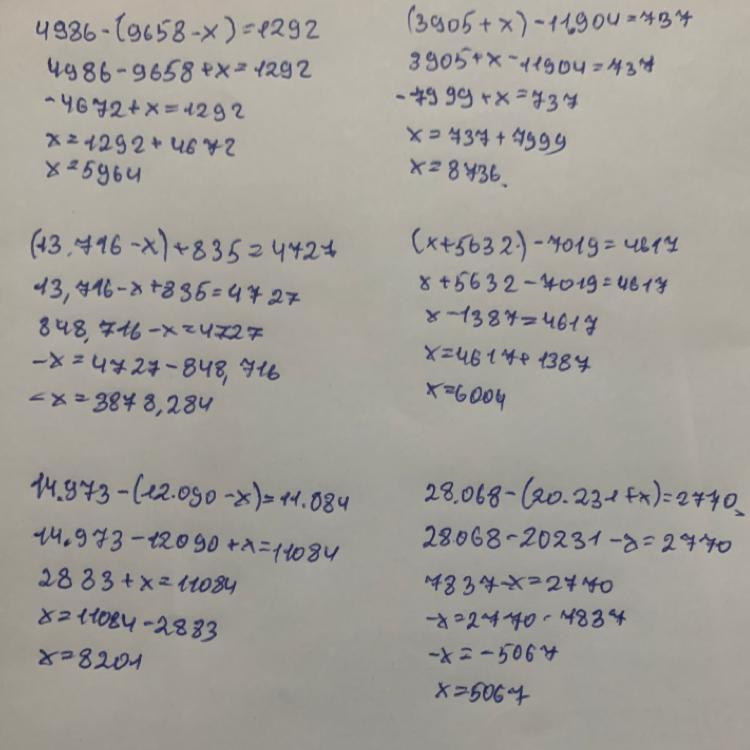 4986-(9658-x)=1292
4986-9658+x=1292
-4672+x=1292
x=1292+4672
x=5964
(3905+x)-11,904=737
3905+x-11904=737
-7999+x=737
x=737+7999
x=8736.
(13.716-x)+835=4727
13,716-x+835=4727
848,716-x=4727
-x=4727-848,716
-x=3878,284
(x+5632.)-7019=4617
x+5632-7019=4617
x-1387=4617
x=4617+1387
x=6004
14.973-(12.090-x)=11.084
14.973-12090+x=11084
2883+x=11084
x=11084-2883
x=8201
28.068-(20.231+x)=2770
28068-20231-x=2770
7837-x=2770
-x=2770-7837
-x=-5067
x=5067